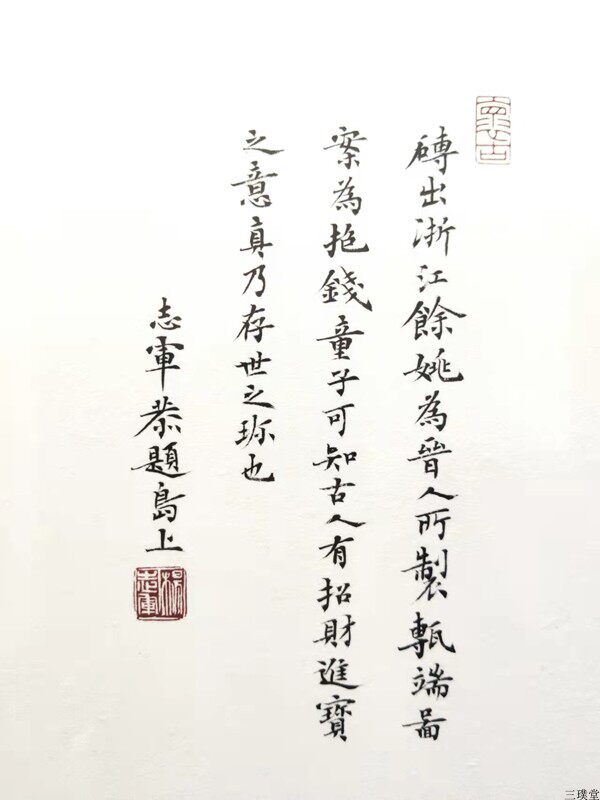 磚出浙江餘姚為晉人所製甎端啚
案為抱錢童子可知古人有招財進寶
之意真乃存世之珎也
志軍恭題島上
楊志軍
三璞堂